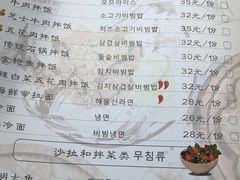 오므라이스 35元/份
牛肉拌饭 소고기비빔밥 32元/份
芝士牛肉拌饭 치즈소고기비빔밥 35元/份
五花肉拌饭 삼겹살비빔밥 32元/份
传统石锅拌饭 돌솥비빔밥 30元/份
金枪鱼拌饭 참치비빔밥 32元/份
辣白菜五花肉拌饭 김치삼겹살비빔밥 32元/份
海鲜辛拉面 해물신라면 28元/份
冷面 냉면 26元/份
冷面 비빔냉면 28元/份
沙拉和拌菜类 무침류
明太鱼